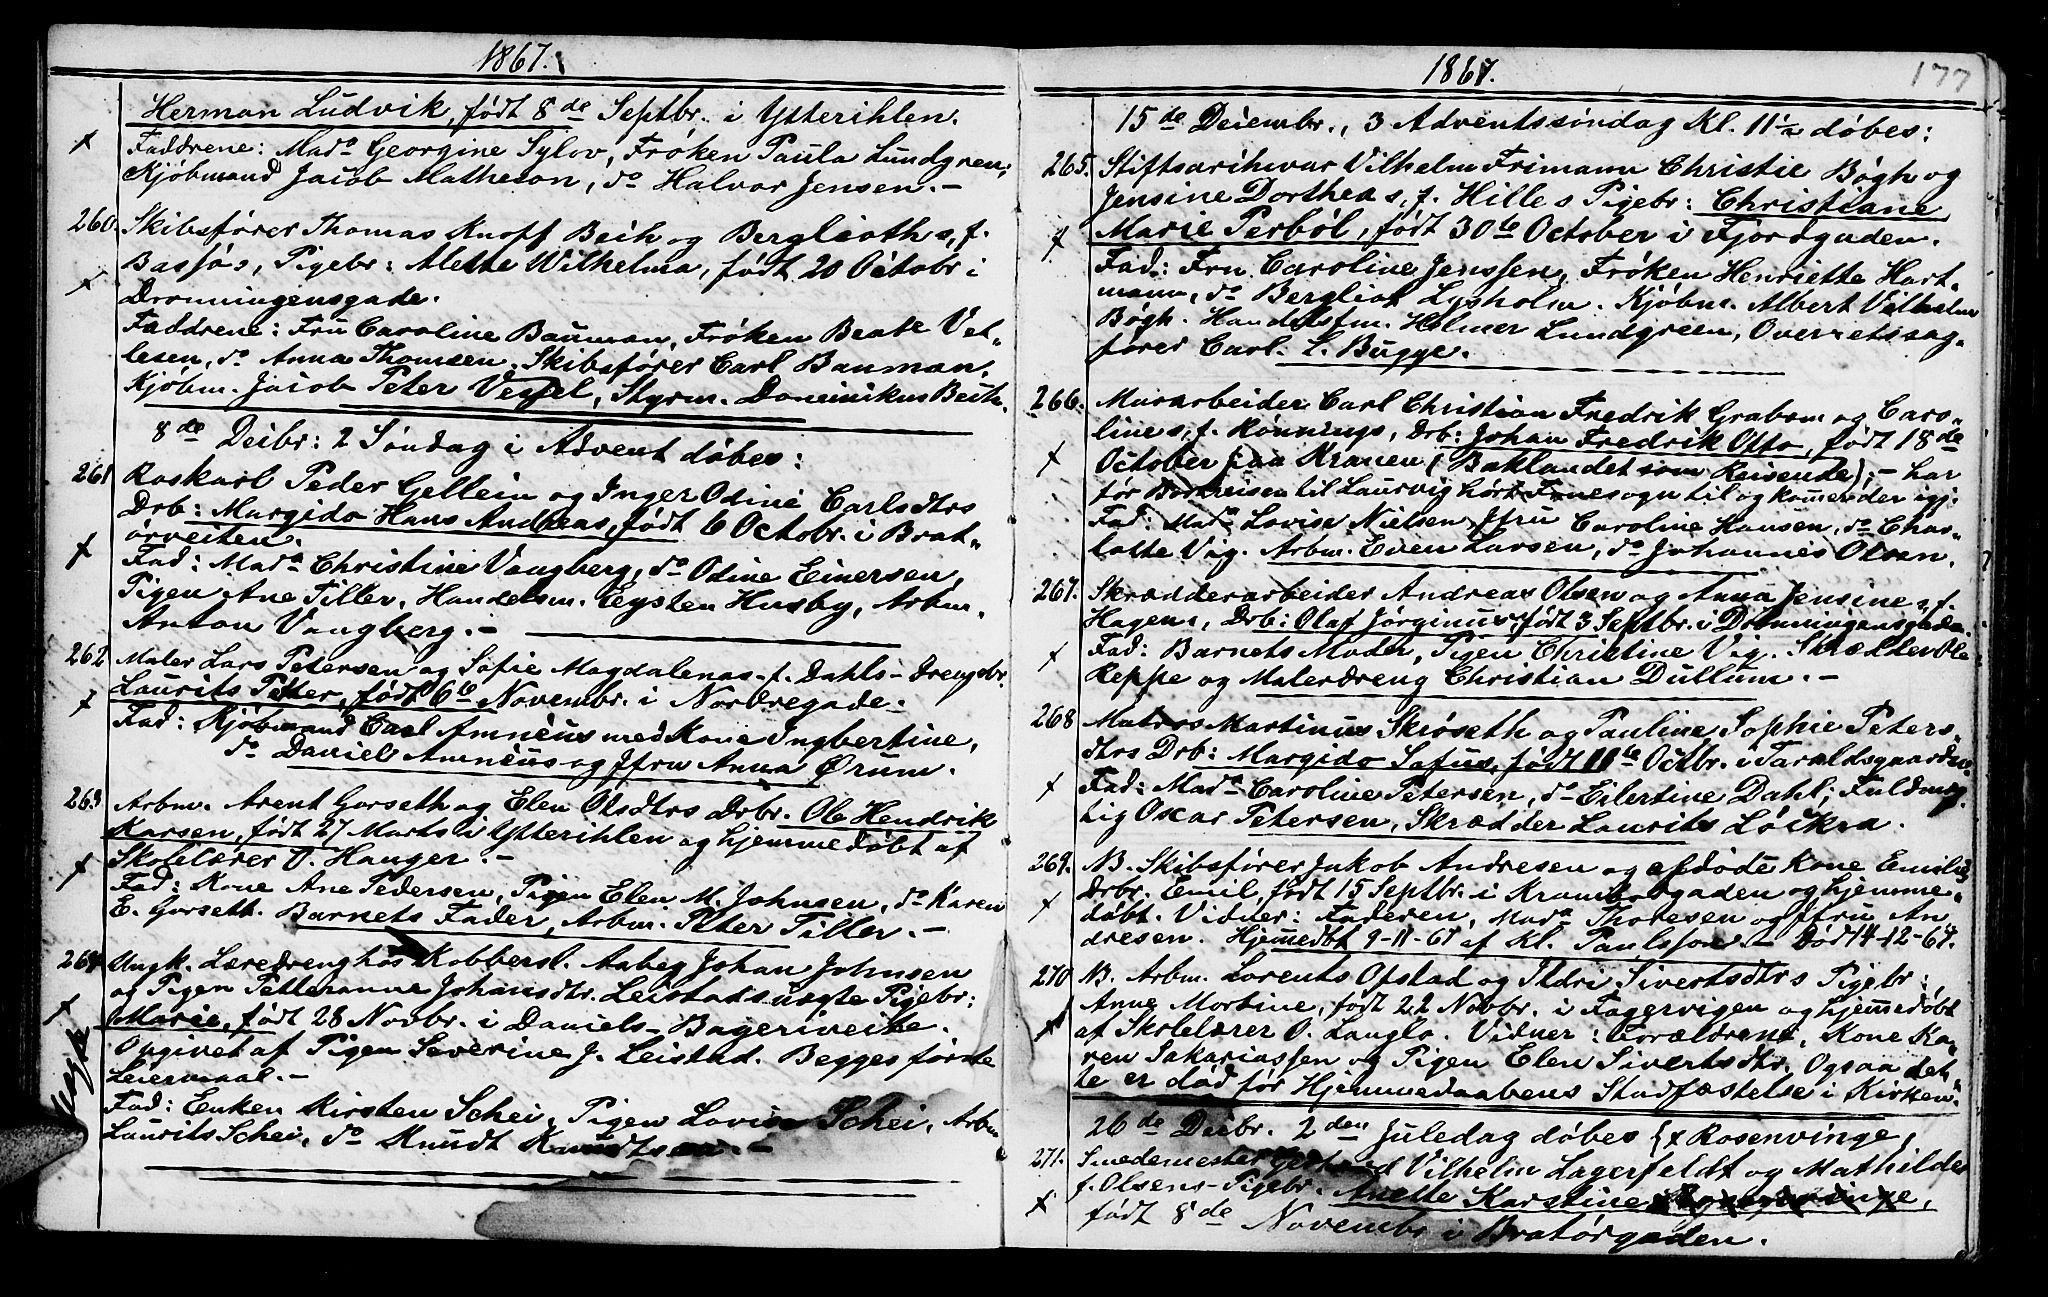 1867.
Herman Ludvik, født 8de Septbr. i Ytterihlen.
Faddrene: Mad. Georgine Sylov, Frøken Paula Lundgren,
Kjøbmand Jacob Matheson, do Halvor Jensen. –
260. Skibsfører Thomas Knoff Beich og Berglioth s, f.
Bassøs, Pigebr: Alette Wilhelma, født 20 Octobr i
Dronningensgade.
Faddrene: Fru Caroline Bauman, Frøken Beate Vet-
lesen, do Anna Thomsen. Skibsfører Carl Bauman,
Kjøbm. Jacob Peter Vessel, Styrm. Dominikus Beich.
8de Decbr: 2 Søndag i Advent døbes:
261 Roskarl Peder Gellein og Inger Odine Carlsdtrs
Drb: Margido Hans Andreas, født 6 Octobr. i Brat-
ørveiten.
Fad: Mad. Christine Vangberg, do Odine Einersen,
Pigen Ane Tiller, Handelsm. Eysten Husby, Arbm.
Anton Vangberg. –
262 Maler Lars Petersen og Sofie Magdalenas f. Dahls – Drengebr.
Laurits Petter, født 6te Novembr. i Nordregade.
Fad: Kjøbmand Carl Amnéus med Kone Ingbertine,
do Daniel Amnéus og Jfru Anna Ørum.
263 Arbm. Arent Gorseth og Elen Olsdtrs Drbr. Ole Hendrik
Karsen, født 27 Marts i Ytterihlen og hjemmedøbt af
Skolelærer O. Hanger. –
Fad: Kone Ane Pedersen, Pigen Elen M. Johnsen, do Karen
E. Gorseth. Barnets Fader, Arbm. Peter Tiller. –
264 Ungk. Læredreng hos Kobbersl. Aabeg Johan Johnsen
og Pigen Petteranne Johansdtr. Leistads uægte Pigebr:
Marie, født 28 Novbr. i Daniels-Bageriveite.
Opgivet af Pigen Severine J. Leistad. Begges første
Leiermaal. –
Fad: Enken Kirsten Schei, Pigen Lovise Schei, Arbm
Laurits Schei, do Knudt Knudtsen. –
uægte
1867.
177
15de Decembr., 3 Adventssøndag Kl. 11½ døbes:
265. Stiftsarchivar Vilhelm Frimann Christie Bøgh og
Jensine Dorthea s, f. Hilles Pigebr: Christiane
Marie Perbøl, født 30te October i Fjordgaden.
Fad: Fru Caroline Jenssen, Frøken Henriette Hart-
mann, do Bergliot Lysholm. Kjøbm. Albert Vilhelm
Bøgh. Handelsfm. Holmer Lundgreen, Overretssag-
fører Carl L. Bugge.
266. Murarbeider Carl Christian Fredrik Grabom og Caro-
line s, f. Rønnings, Drb: Johan Fredrik Otto, født 18de
October paa Kranen (Baklandet som Reisende); – har
før Bortreisen til Laurvig hørt Fruesogn til og kommer der igj:
Fad: Mad. Lovise Nielsen, Jfru Caroline Hansen, do Char-
lotte Vig. Arbm. Even Larsen, do Johannes Olsen.
267. Skrædderarbeider Andreas Olsen og Anna Jensine s, f.
Hagens, Drb: Olaf Jørginus født 3 Septbr. i Dronningensgade.
Fad: Barnets Moder, Pigen Christine Vig. Skrædder Ole
Reppe og Malerdreng Christian Dullum. –
268 Matros Martinus Skjøseth og Pauline Sophie Peters-
dtrs Drb: Margido Safius, født 10te Octbr. i Taraldsgaarden.
Fad: Mad. Caroline Petersen, do Eilertine Dahl; Fuldmæg-
tig Oscar Petersen, Skrædder Laurits Løikra.
269. N. Skibsfører Jakob Andresen og afdøde Kone Emilies
Drbr. Emil, født 15 Septbr. i Krambodgaden og hjemme-
døbt. Vidner: Faderen, Mad. Thoresen og Jfru An-
dresen. Hjemmedbt 9-11-67 af Kl. Paulsson. – Død 14-12-67.
270 N. Arbm. Lorents Ofstad og Ildri Sivertsdtrs Pigebr:
Anne Mortine, født 22 Novbr. i Fagervigen og hjemmedøbt
af Skolelærer O. Langlo. Vidner: Forældrene, Kone Ka-
ren Sakariassen og Pigen Elen Sivertsdtr. Ogsaa det-
te er død før Hjemmedaabens Stadfæstelse i Kirken.
26de Decbr. 2den Juledag døbes (x Rosenvinge,
271. Smedemester Gerhard Vilhelm Lagerfeldt og Mathildes
f. Olsens – Pigebr. Anette Karstine
født 8de Novembr i Bratørgaden.